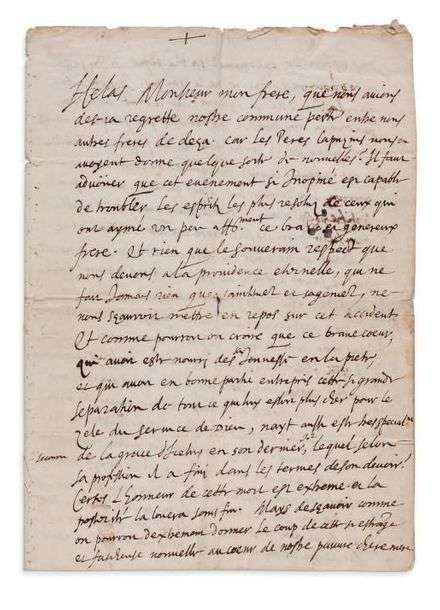 Helas Monsieur mon frere, que nous avions
des-ia regretté nostre commune perte entre nous
autres freres de deça. car les Peres Capucins nous en
avoyent donné quelque sorte de nouvelles. Il faut
advoüer que cet evenement si Inopiné est capable
de troubler les esprits les plus resolus de ceux qui
ont aymé un peu affb.ment ce brave et genereux
frere. Et rien que le souverain respect que
nous devons a la providence eternelle, qui ne
fait Jamais rien que saintement et sagement, ne
nous sçauroit mettre en repos sur cet accident.
Et comme pourroit on croire que ce brave coeur,
qui avoit esté nourri des sa Jeunesse en la pieté
et qui avoit en bonne partie entrepris cette si grande
separation de tout ce qui luy estoit plus cher pour le
Zele du service de Dieu, n'ayt aussi esté
secouru de la grace d'icelui en son dernier, lequel selon
sa profession il a fini dans les termes de son devoir.
Certes L'honneur de cette mort est extreme et la
posterité la louera sans fin. Mays de sçavoir comme
on pourroit dextrement donner le coup de cette si estrange
et fascheuse nouvelle au coeur de nostre pauvre chere mere